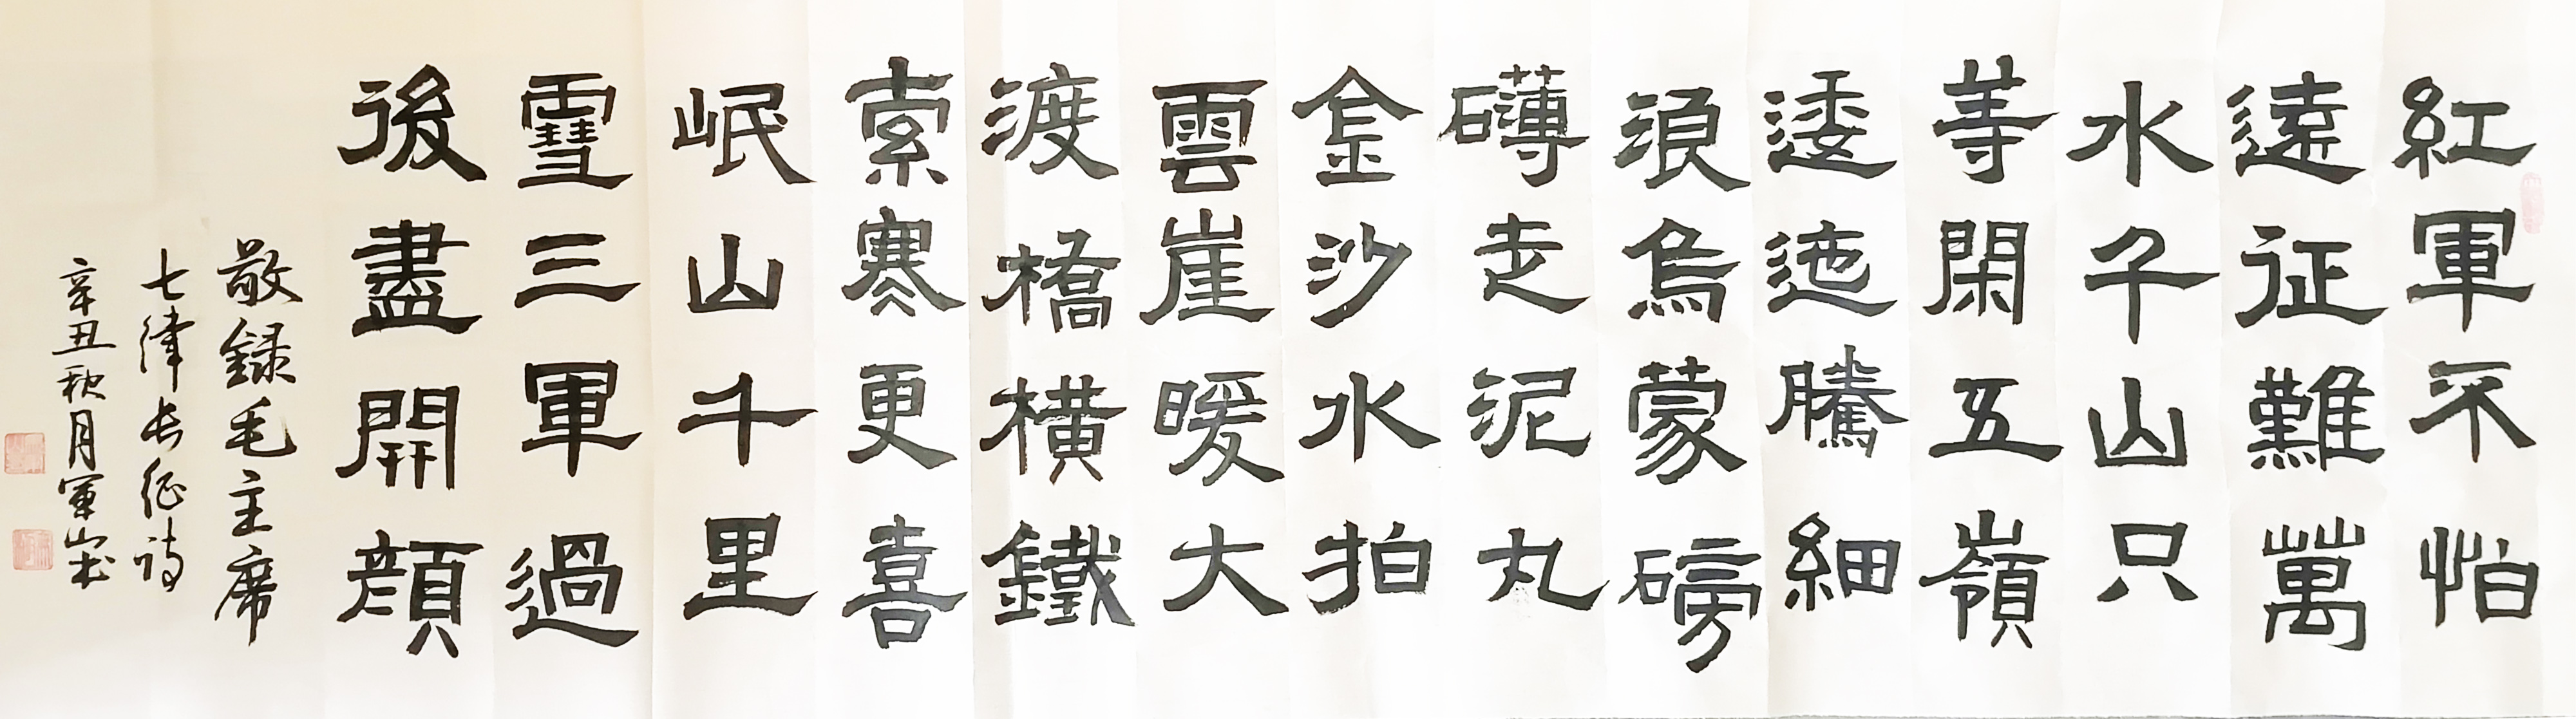 紅軍不怕
遠征難萬
水千山只
等閑五嶺
逶迤騰細
浪烏蒙磅
礴走泥丸
金沙水拍
雲崖暖大
渡橋橫鐵
索寒更喜
岷山千里
雪三軍過
後盡開顏
敬録毛主席
七律长征詩
辛丑秋月軍山书